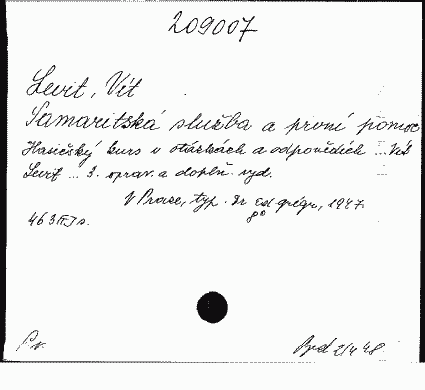 209007
Levit, Vít
Samaritská služba a první pomoc
Hasičský kurs v otázkách a odpovědích ... Vít
Levit ... 3. oprav. a doplň. vyd.
V Praze, typ. Dr Ed Grégr, 1947.
8°
463 s.
2/4 48.